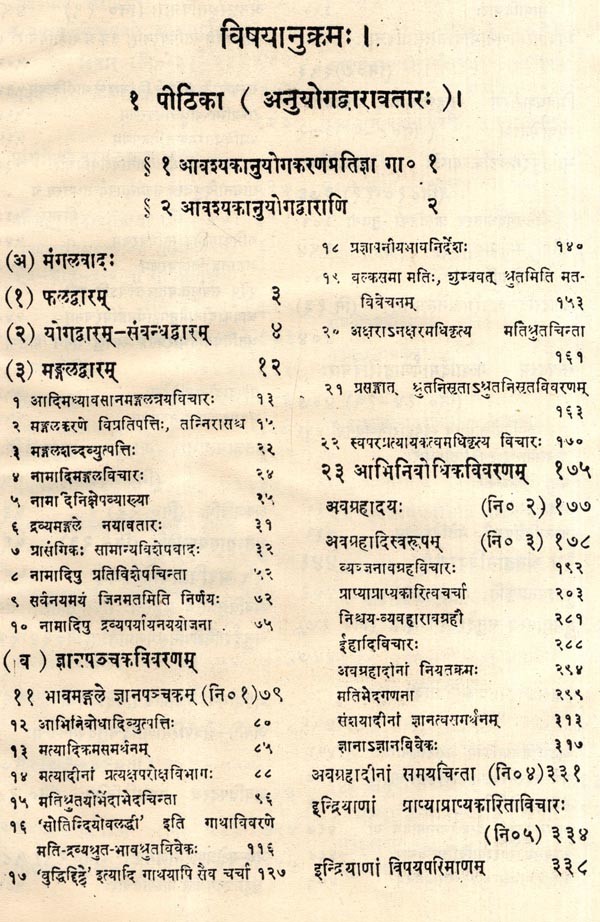 विषयानुक्रमः ।
१ पीठिका ( अनुयोगद्वारावतारः )।
§ १ आवश्यकानुयोगकरणप्रतिज्ञा गा० १
§ २ आवश्यकानुयोगद्वाराणि २
(अ) मंगलवादः
(१) फलद्वारम् ३
(२) योगद्वारम्-संबन्धद्वारम् ४
(३) मङ्गलद्वारम् १२
१ आदिमध्यावसानमङ्गलत्रयविचारः १३
२ मङ्गलकरणे विप्रतिपत्तिः, तन्निरासश्च १५
३ मङ्गलशब्दव्युत्पत्तिः २२
४ नामादिमङ्गलविचारः २४
५ नामादिनिक्षेपव्याख्या २५
६ द्रव्यमङ्गले नयावतारः ३१
७ प्रासंगिकः सामान्यविशेषवादः ३२
८ नामादिषु प्रतिविशेषचिन्ता ५२
९ सर्वनयमयं जिनमतमिति निर्णयः ७२
१० नामादिषु द्रव्यपर्यायनययोजना ७५
(ब) ज्ञानपञ्चकविवरणम्
११ भावमङ्गले ज्ञानपञ्चकम् (नि०१) ७९
१२ आभिनिबोधादिव्युत्पत्तिः ८०
१३ मत्यादिक्रमसमर्थनम् ८५
१४ मत्यादीनां प्रत्यक्षपरोक्षविभागः ८८
१५ मतिश्रुतयोर्भेदाभेदचिन्ता ९६
१६ 'सोतिन्दियोवलद्धी' इति गाथाविवरणे
मति-द्रव्यश्रुत-भावश्रुतविवेकः ११६
१७ 'बुद्धिद्दिट्ठे' इत्यादि गाथयापि सैव चर्चा १२७
१८ प्रज्ञापनीयभावनिर्देशः १४०
१९ वल्कसमा मतिः, शुम्बवत् श्रुतमिति मत-
विवेचनम् १५३
२० अक्षराऽनक्षरमधिकृत्य मतिश्रुतचिन्ता
१६१
२१ प्रसङ्गात् श्रुतनिसृताऽश्रुतनिसृतविवरणम्
१६३
२२ स्वपरप्रत्यायकत्वमधिकृत्य विचारः १७०
२३ आभिनिबोधिकविवरणम् १७५
अवग्रहादयः (नि० २) १७७
अवग्रहादिस्वरूपम् (नि० ३) १७८
व्यञ्जनावग्रहविचारः १९२
प्राप्याप्राप्यकारित्वचर्चा २०३
निश्चय-व्यवहारावग्रहौ २८१
ईहादिविचारः २८८
अवग्रहादीनां नियतक्रमः २९४
मतिभेदगणना २९९
संशयादीनां ज्ञानत्वसमर्थनम् ३१३
ज्ञानाऽज्ञानविवेकः ३१७
अवग्रहादीनां समयचिन्ता (नि०४) ३३१
इन्द्रियाणां प्राप्याप्राप्यकारिताविचारः
(नि०५) ३३४
इन्द्रियाणां विषयपरिमाणम् ३३८